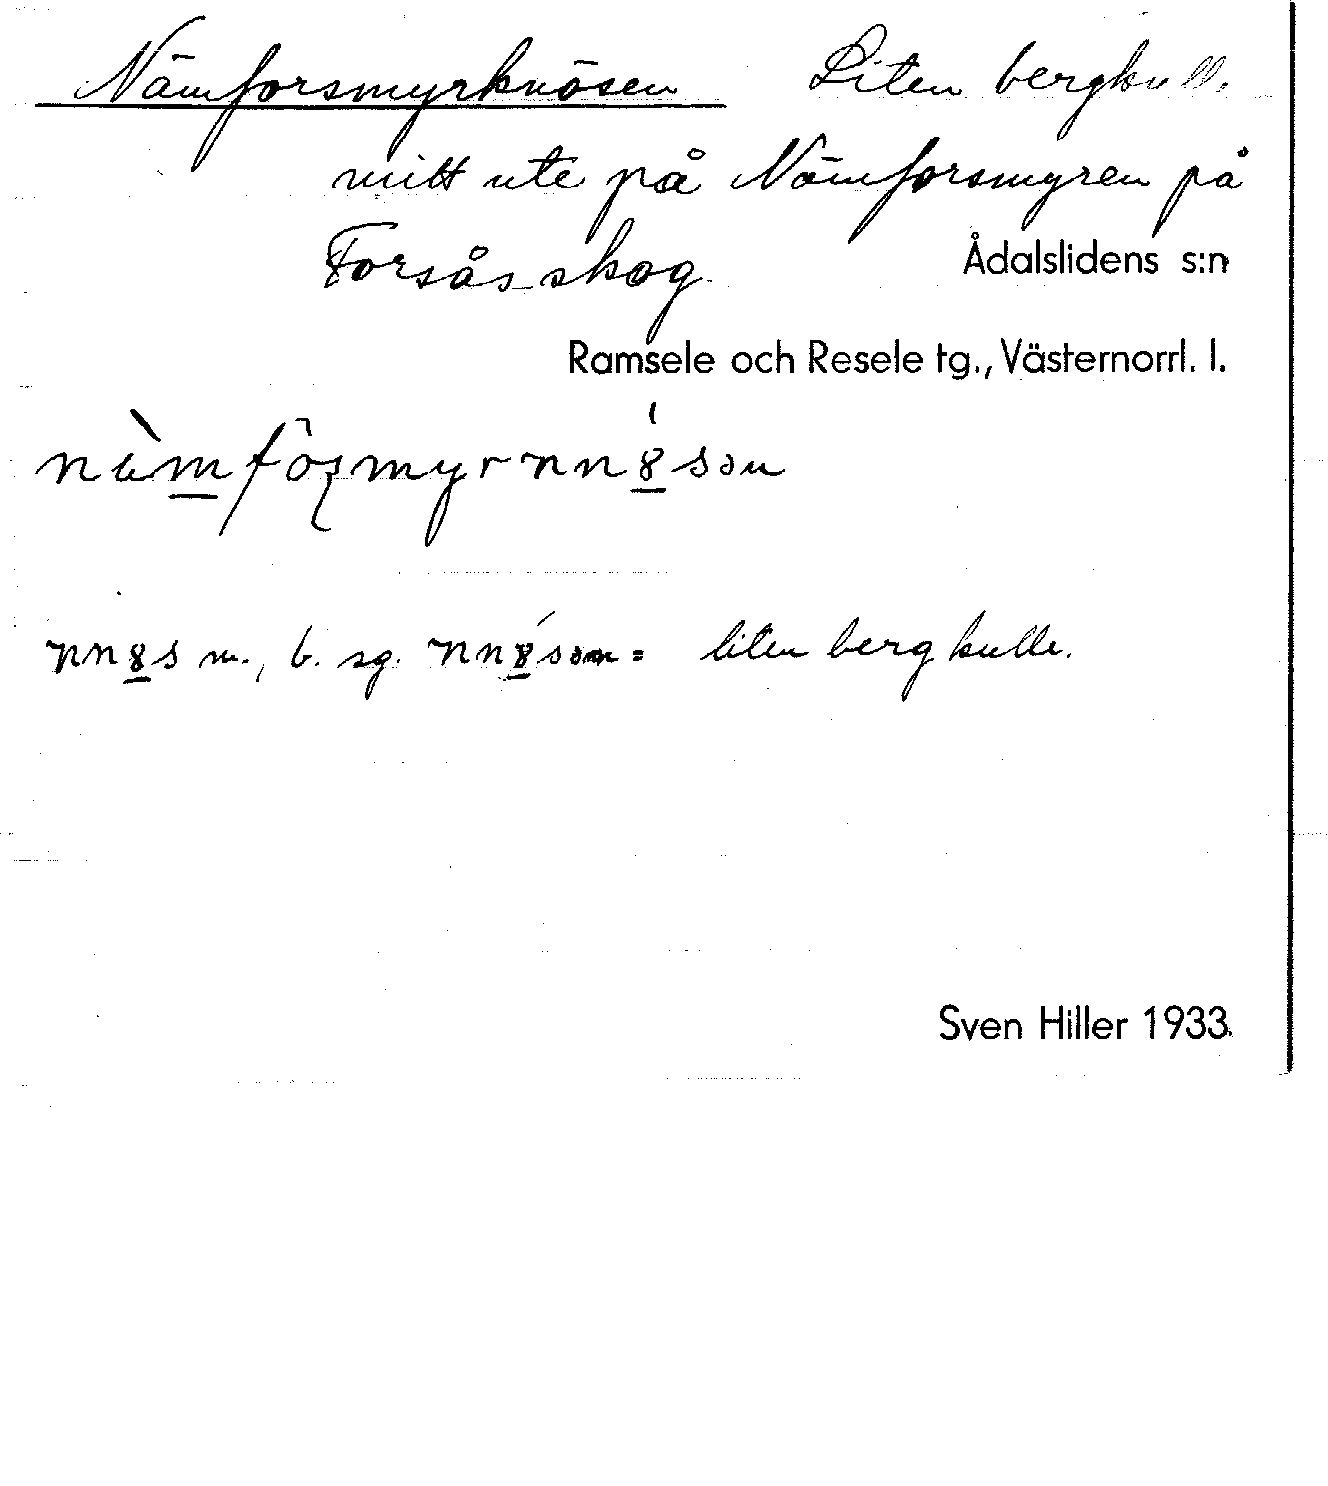 Nämforsmyrknösen Liten bergkull.
mitt ute på Nämforsmyren på
Forsås skog. Ådalslidens s:n
Ramsele och Resele tg., Västernorrl. l.
m., b. sg. = liten bergkulle.
Sven Hiller 1933.